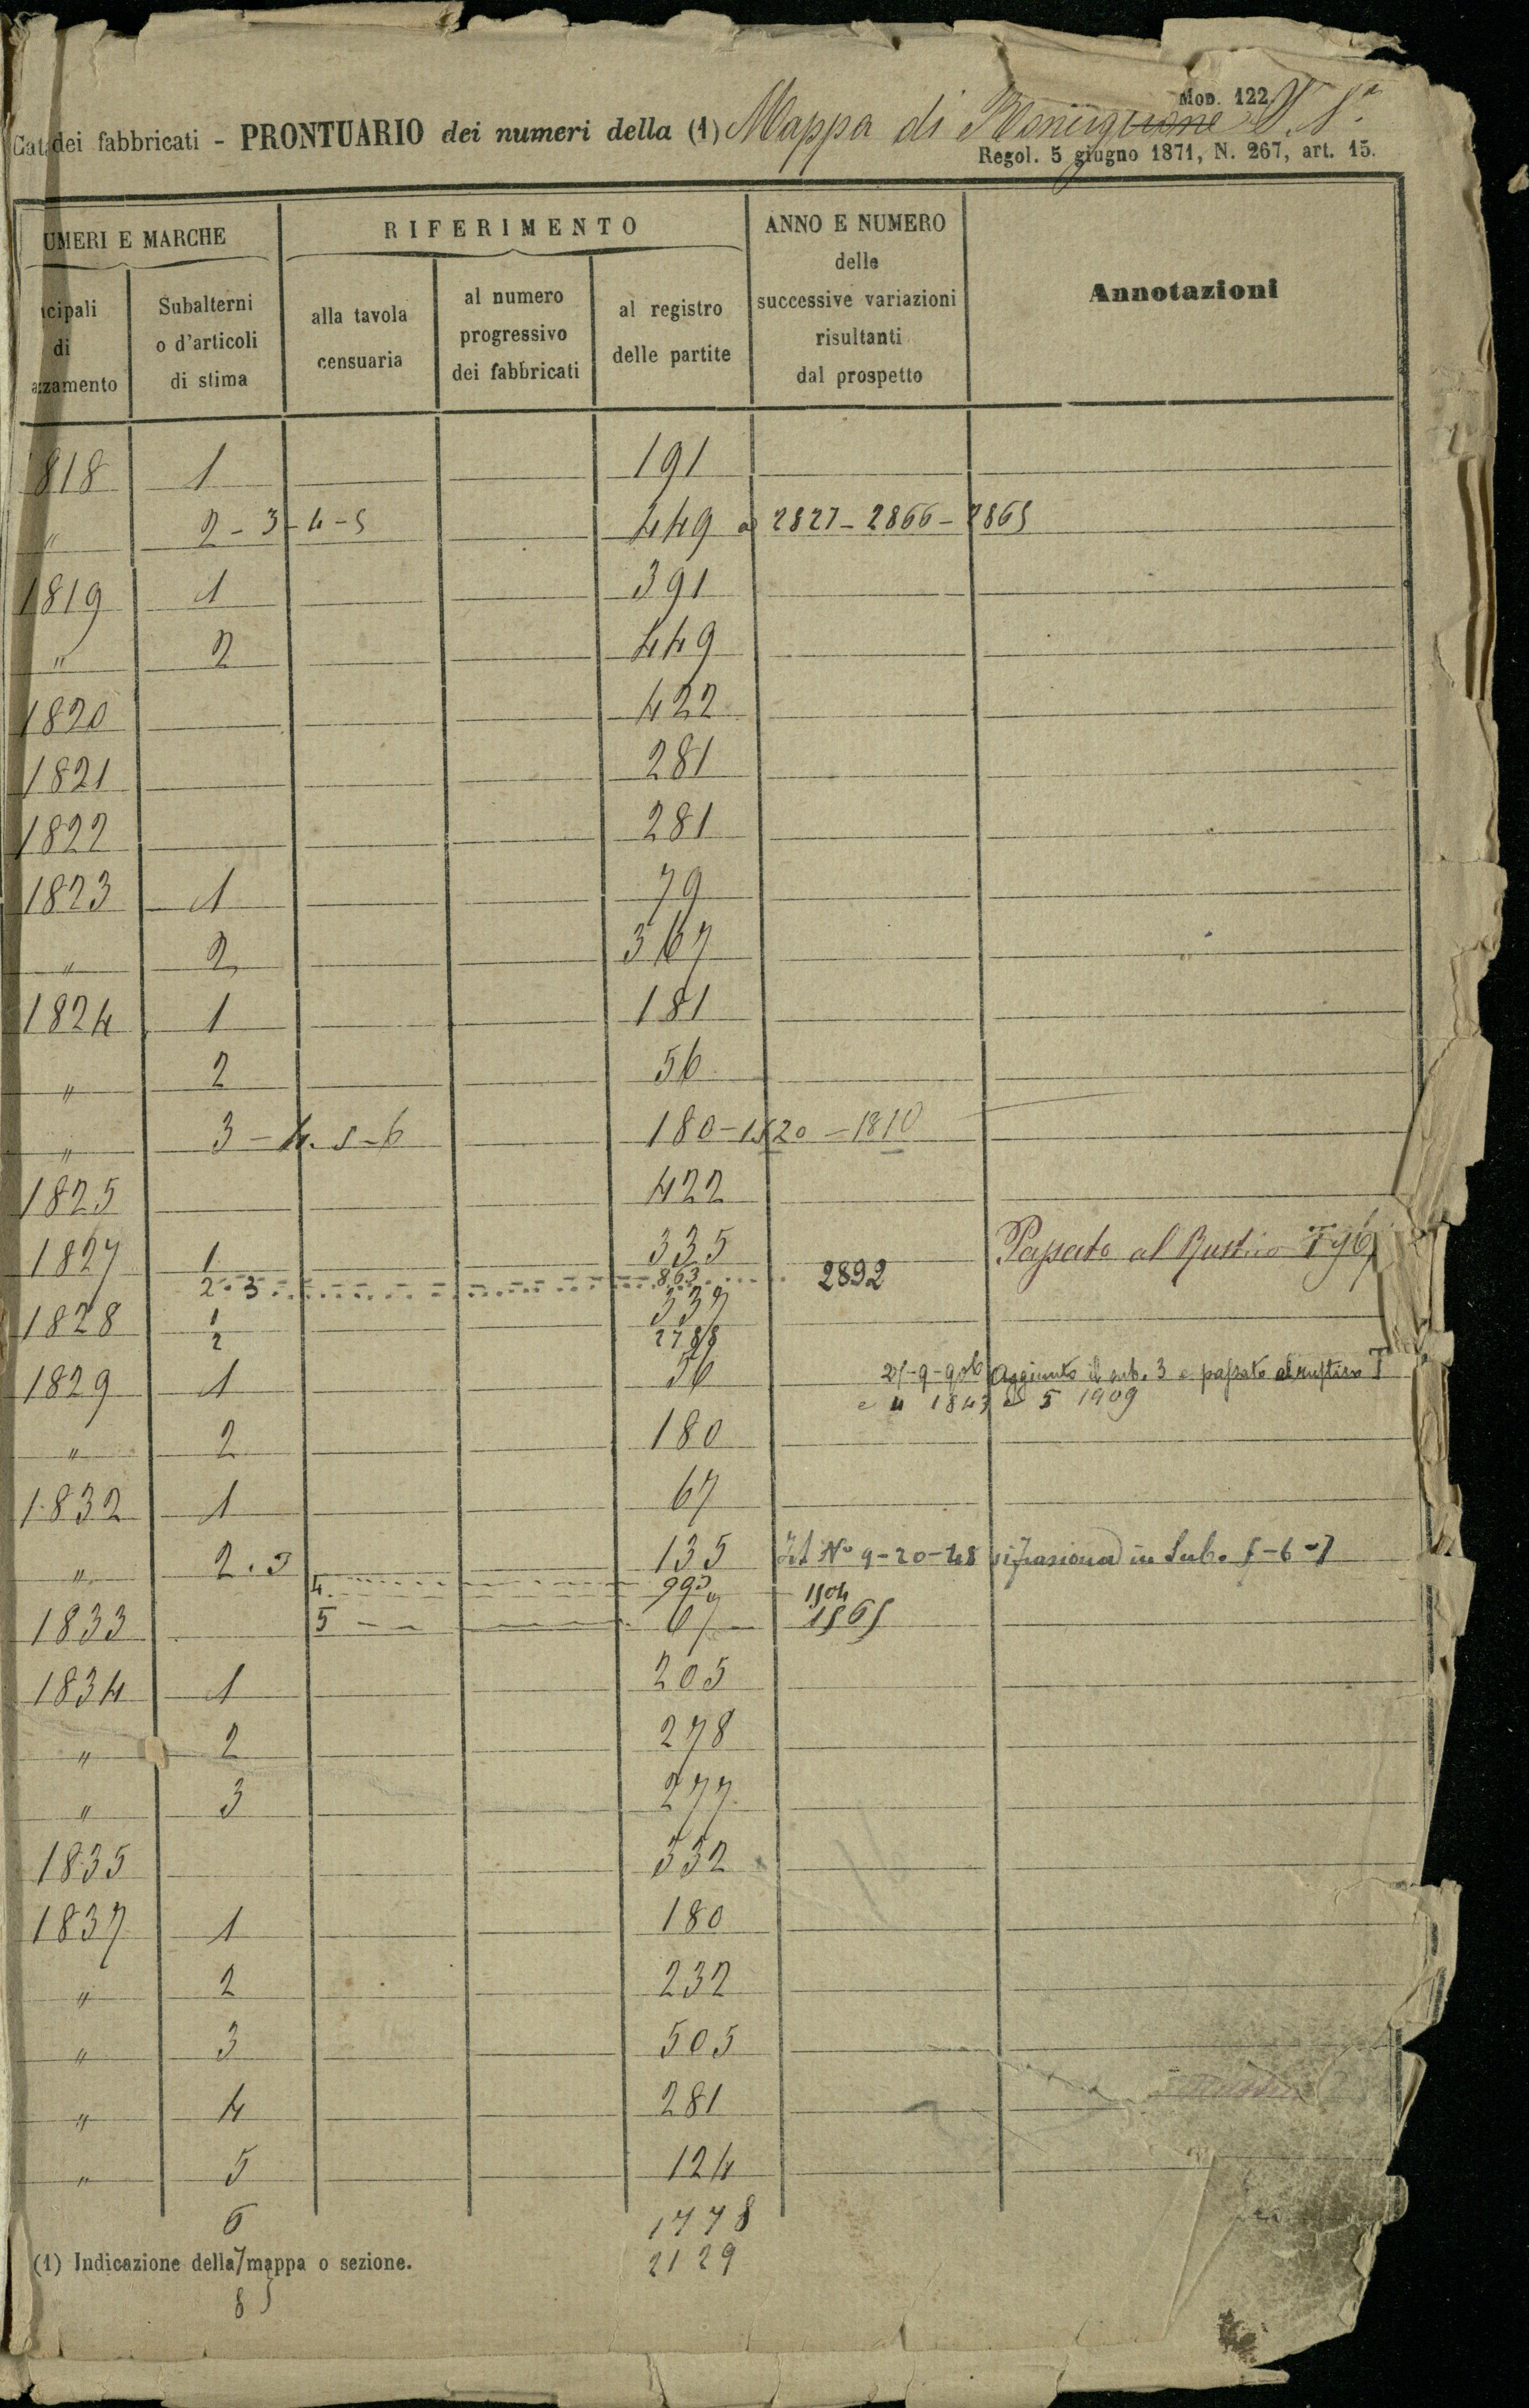 Mod. 122
Cat. dei fabbricati - PRONTUARIO dei numeri della (1) Mappa di Ronciglione
Regol. 5 giugno 1871, N. 267, art. 15.
UMERI E MARCHE
RIFERIMENTO
ANNO E NUMERO
delle
successive variazioni
risultanti
dal prospetto
Annotazioni
icipali
di
azzamento
Subalterni
o d'articoli
di stima
alla tavola
censuaria
al numero
progressivo
dei fabbricati
al registro
delle partite
1818 1 191
" 2-3-4-5 449 2827-2866-2865
1819 1 391
" 2 449
1820 422
1821 281
1822 281
1823 1 79
" 2 367
1824 1 181
" 2 56
" 3-4.5-6 180-1520-1810
1825 422
1827 1 335 Passato al Rustico
2.3 863 2892
1828 1 337
2 2788
1829 1 56 Aggiunto il sub. 3 e passato al rustico T
e 4 1843 e 5 1909
" 2 180
1832 1 67
" 2.3 135 N° 9-20-48 in Sub. 5-6-7
4 993 1504
1833 5 67 1565
1834 1 205
" 2 278
" 3 277
1835 332
1837 1 180
" 2 232
" 3 505
" 4 281
" 5 124
6 1778
(1) Indicazione della mappa o sezione.
7 2129
8